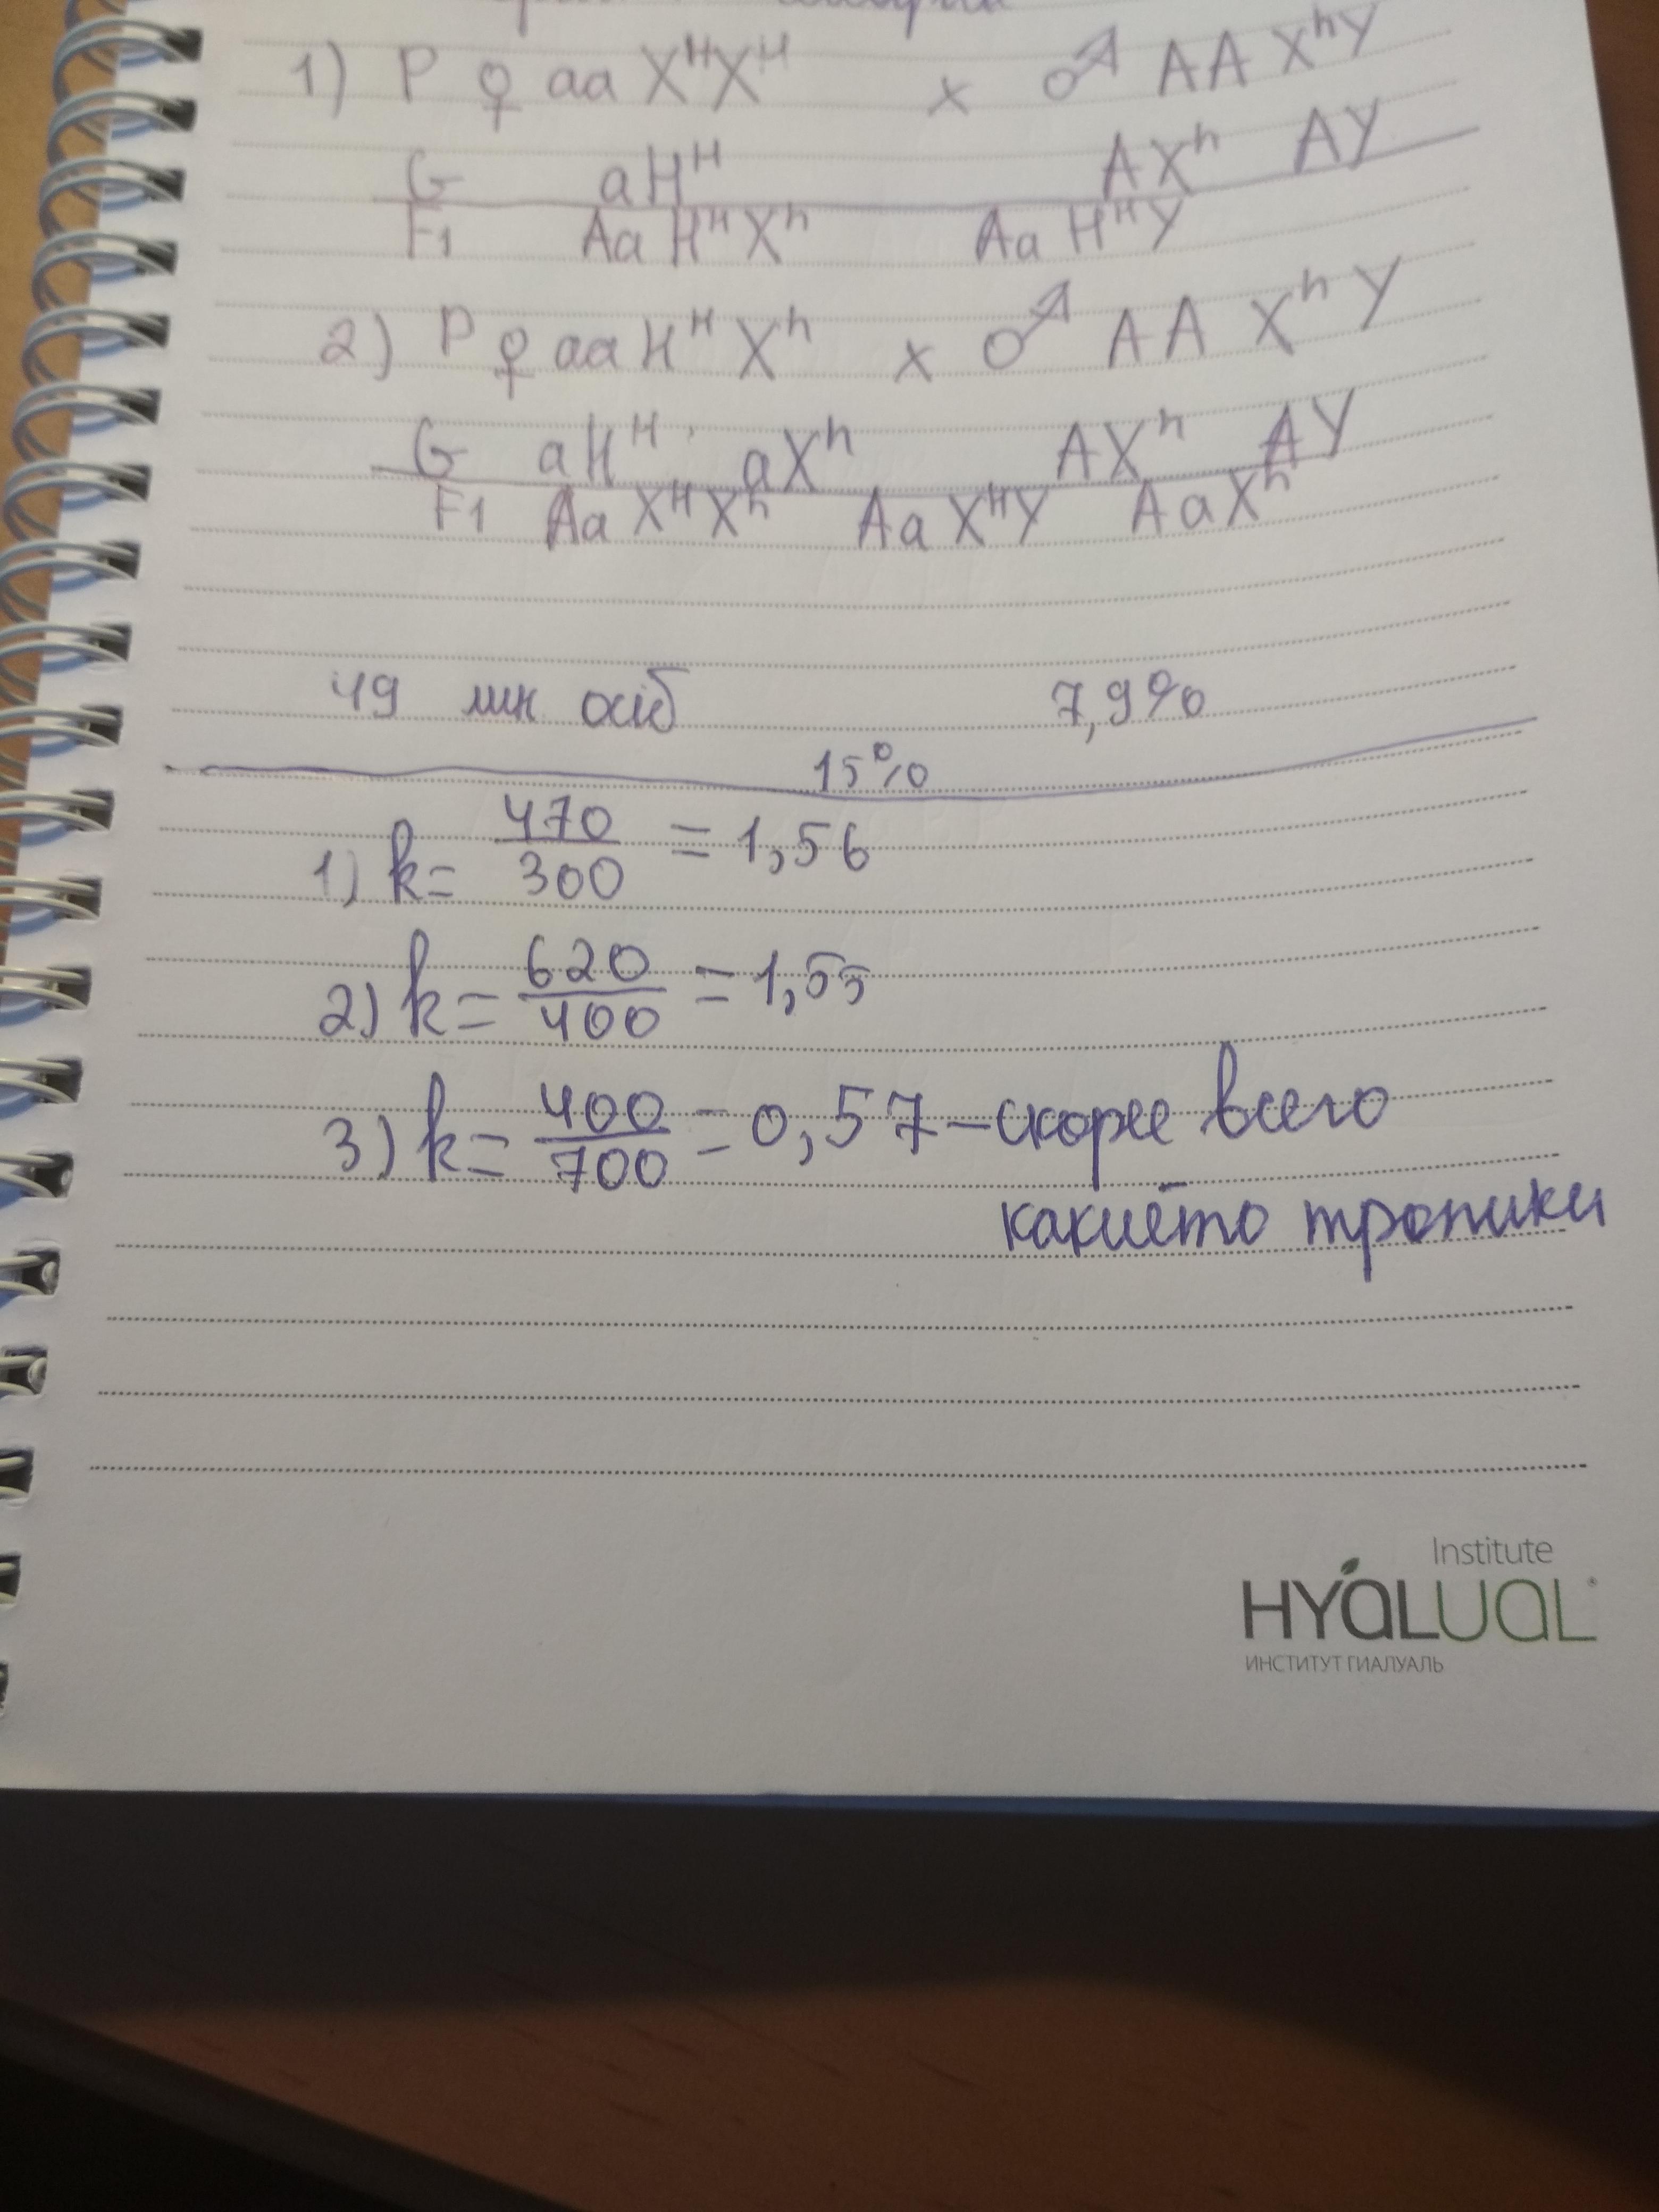 1) P ♀ aa XᴴXᴴ x ♂ AA XʰY
G aHᴴ AXʰ AY
F1 Aa HᴴXʰ Aa HᴴY
2) P ♀ aa HᴴXʰ x ♂ AA XʰY
G aHᴴ, aXʰ AXʰ AY
F1 Aa XᴴXʰ Aa XᴴY AaXʰ
49 млн осіб 7,9%
15%
1) k= 470/300 = 1,56
2) k= 620/400 = 1,55
3) k= 400/700 = 0,57 – скорее всего
какието тропики
Institute
HYALUAL
ИНСТИТУТ ГИАЛУАЛЬ